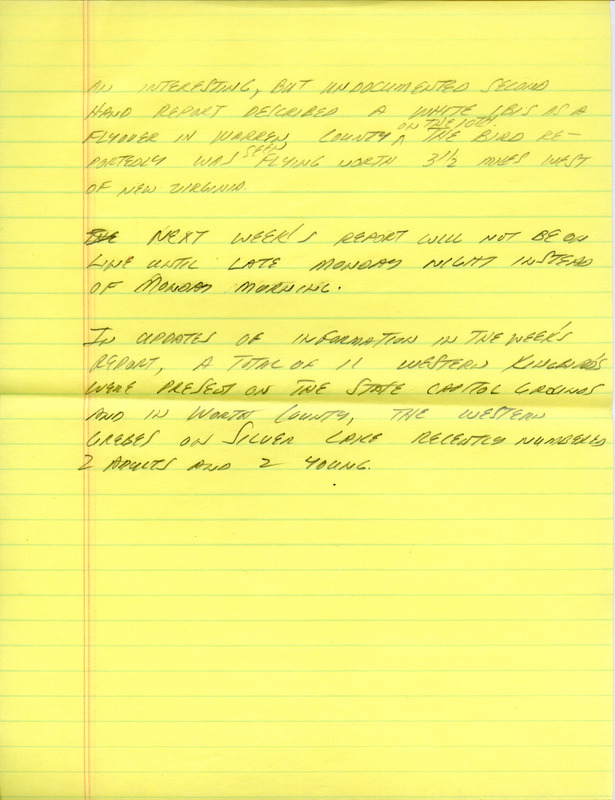 AN INTERESTING, BUT UNDOCUMENTED SECOND
HAND REPORT DESCRIBED A WHITE IBIS AS A
FLYOVER IN WARREN COUNTY ON THE 10TH. THE BIRD RE-
PORTEDLY WAS SEEN FLYING NORTH 3 1/2 MILES WEST
OF NEW VIRGINIA.
THE NEXT WEEK'S REPORT WILL NOT BE ON
LINE UNTIL LATE MONDAY NIGHT INSTEAD
OF MONDAY MORNING.
IN UPDATES OF INFORMATION IN THE WEEK'S
REPORT, A TOTAL OF 11 WESTERN KINGBIRDS
WERE PRESENT ON THE STATE CAPITOL GROUNDS
AND IN WORTH COUNTY, THE WESTERN
GREBES ON SILVER LAKE RECENTLY NUMBERED
2 ADULTS AND 2 YOUNG.